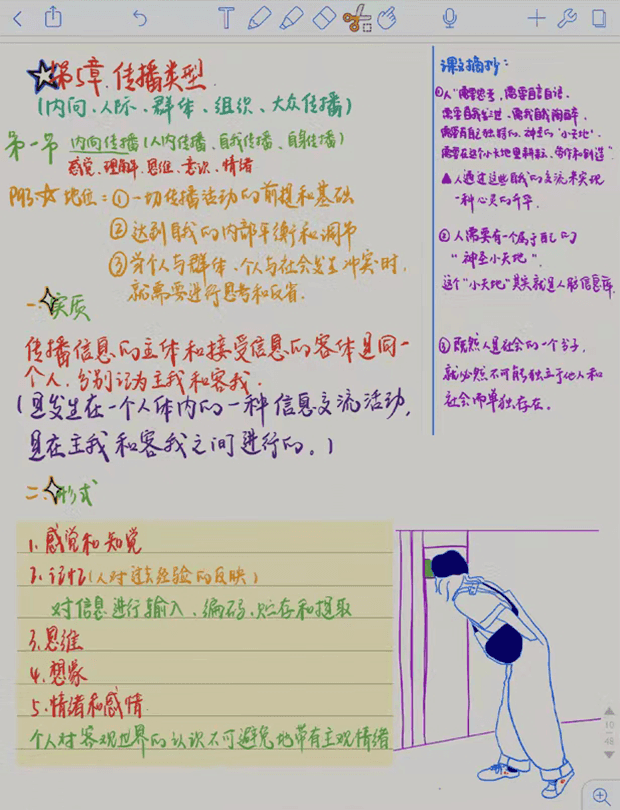 第5章 传播类型
(内向、人际、群体、组织、大众传播)
第一节 内向传播(人内传播、自我传播、自身传播)
感觉、理解、思维、意识、情绪
P83 ☆ 地位:①一切传播活动的前提和基础
②达到自我的内部平衡和调节
③当个人与群体、个人与社会发生冲突时,
就需要进行思考和反省.
一.实质
传播信息的主体和接受信息的客体是同一
个人.分别记为主我和客我.
(且发生在一个人体内的一种信息交流活动,
且在主我和客我之间进行的。)
二.形式
1.感觉和知觉
2.记忆(人对过去经验的反映)
对信息进行输入、编码、贮存和提取
3.思维
4.想象
5.情绪和感情
个人对客观世界的认识不可避免地带有主观情绪
课文摘抄:
①人"需要思考,需要自言自语、
需要自我发泄、需我自我陶醉、
需要有自己独特的、神圣的"小天地".
需要在这个小天地里耕耘、劳作和创造"
▲人通过这些自我的交流来实现
一种心灵的升华.
②人需要有一个属于自己的
"神圣小天地".
这个"小天地"其实就是人脑信息库.
③既然人是社会的一个分子,
就必然不可能独立于他人和
社会而单独存在。
10
48